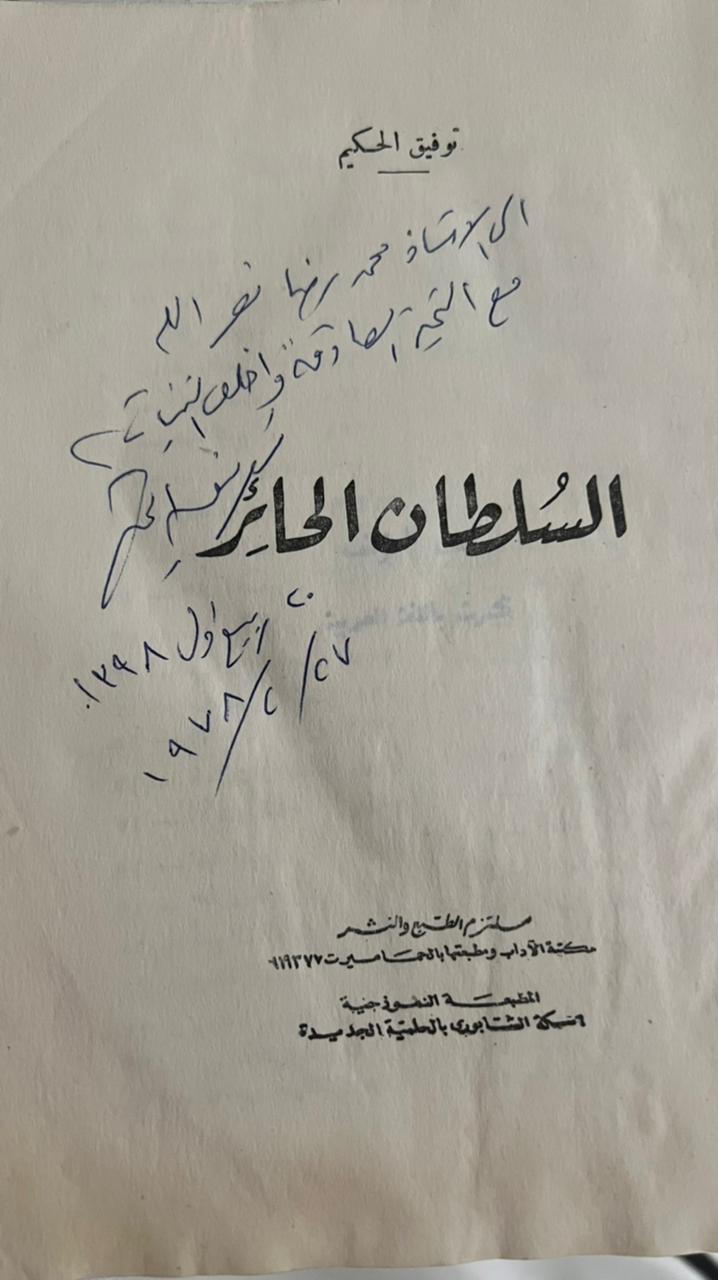 توفيق الحكيم
الى الاستاذ محمد رضا نصر الله
مع التحية الصادقة وأخلص التمنيات
توفيق الحكيم
السُلطان الحائِر
٢٠ ربيع أول ١٣٩٨
٢٧/٢/١٩٧٨
ملتزم الطبع والنشر
مكتبة الآداب ومطبعتها بالجماميزت ٩١٩٣٧٧
المطبعة النموذجية
٦ سكة الشابورى بالحلمية الجديدة